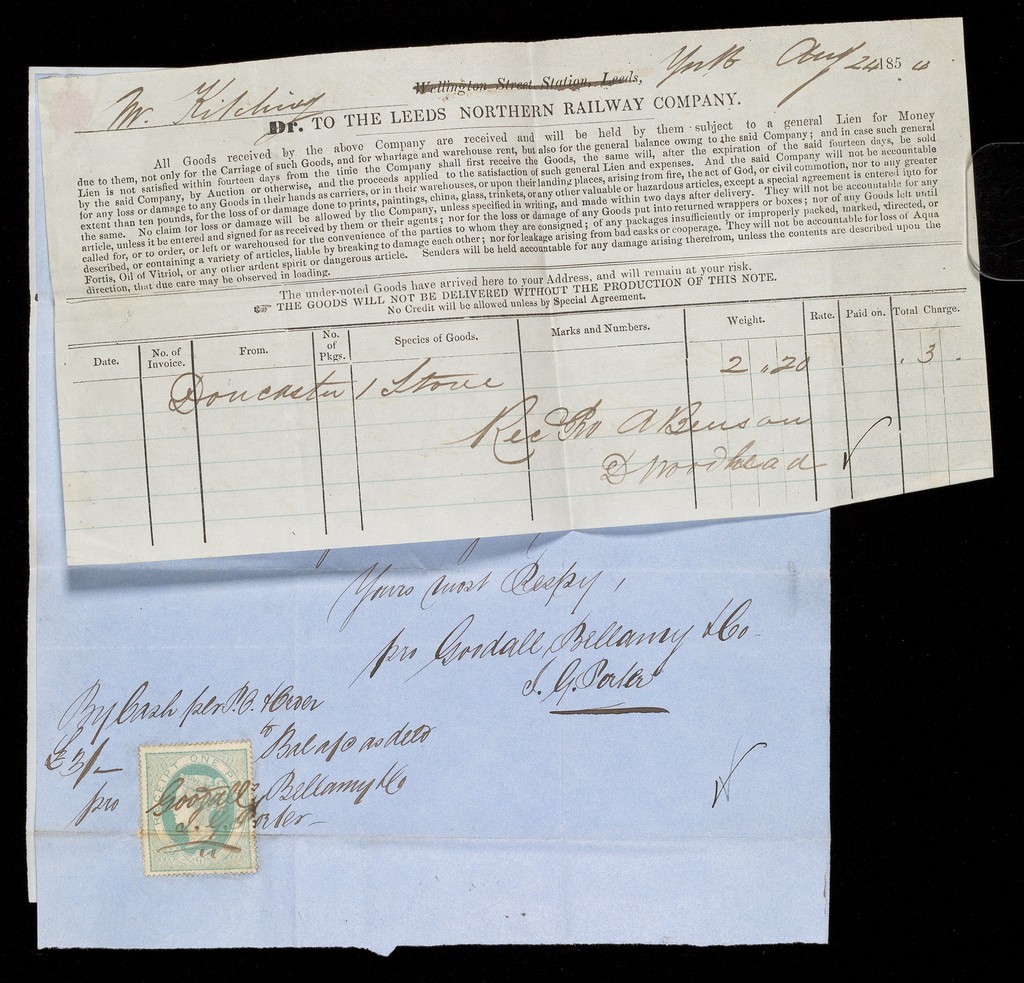 Wellington Street Station, Leeds, York Aug 24 185
Mr. Kitching
Dr. TO THE LEEDS NORTHERN RAILWAY COMPANY.
All Goods received by the above Company are received and will be held by them subject to a general Lien for Money
due to them, not only for the Carriage of such Goods, and for wharfage and warehouse rent, but also for the general balance owing to the said Company; and in case such general
Lien is not satisfied within fourteen days from the time the Company shall first receive the Goods, the same will, after the expiration of the said fourteen days, be sold
by the said Company, by Auction or otherwise, and the proceeds applied to the satisfaction of such general Lien and expenses. And the said Company will not be accountable
for any loss or damage to any Goods in their hands as carriers, or in their warehouses, or upon their landing places, arising from fire, the act of God, or civil commotion, nor to any greater
extent than ten pounds, for the loss of or damage done to prints, paintings, china, glass, trinkets, or any other valuable or hazardous articles, except a special agreement is entered into for
the same. No claim for loss or damage will be allowed by the Company, unless specified in writing, and made within two days after delivery. They will not be accountable for any
article, unless it be entered and signed for as received by them or their agents; nor for the loss or damage of any Goods put into returned wrappers or boxes; nor of any Goods left until
called for, or to order, or left or warehoused for the convenience of the parties to whom they are consigned; of any packages insufficiently or improperly packed, marked, directed, or
described, or containing a variety of articles, liable by breaking to damage each other; nor for leakage arising from bad casks or cooperage. They will not be accountable for loss of Aqua
Fortis, Oil of Vitriol, or any other ardent spirit or dangerous article. Senders will be held accountable for any damage arising therefrom, unless the contents are described upon the
direction, that due care may be observed in loading.
The under-noted Goods have arrived here to your Address, and will remain at your risk.
☞ THE GOODS WILL NOT BE DELIVERED WITHOUT THE PRODUCTION OF THIS NOTE.
No Credit will be allowed unless by Special Agreement.
Date. No. of Invoice. From. No. of Pkgs. Species of Goods. Marks and Numbers. Weight. Rate. Paid on. Total Charge.
Doncaster 1 Stove 2 . 20 . 3 .
Rec Pro A Benson
D Woodhead
Yours most Respy,
pro Goodall, Bellamy & Co
J. G. Porter
By Cash per P.O. Order
£3/- Bal a/c as deto
pro Goodall, Bellamy & Co
J. G. Porter
RECEIPT ONE